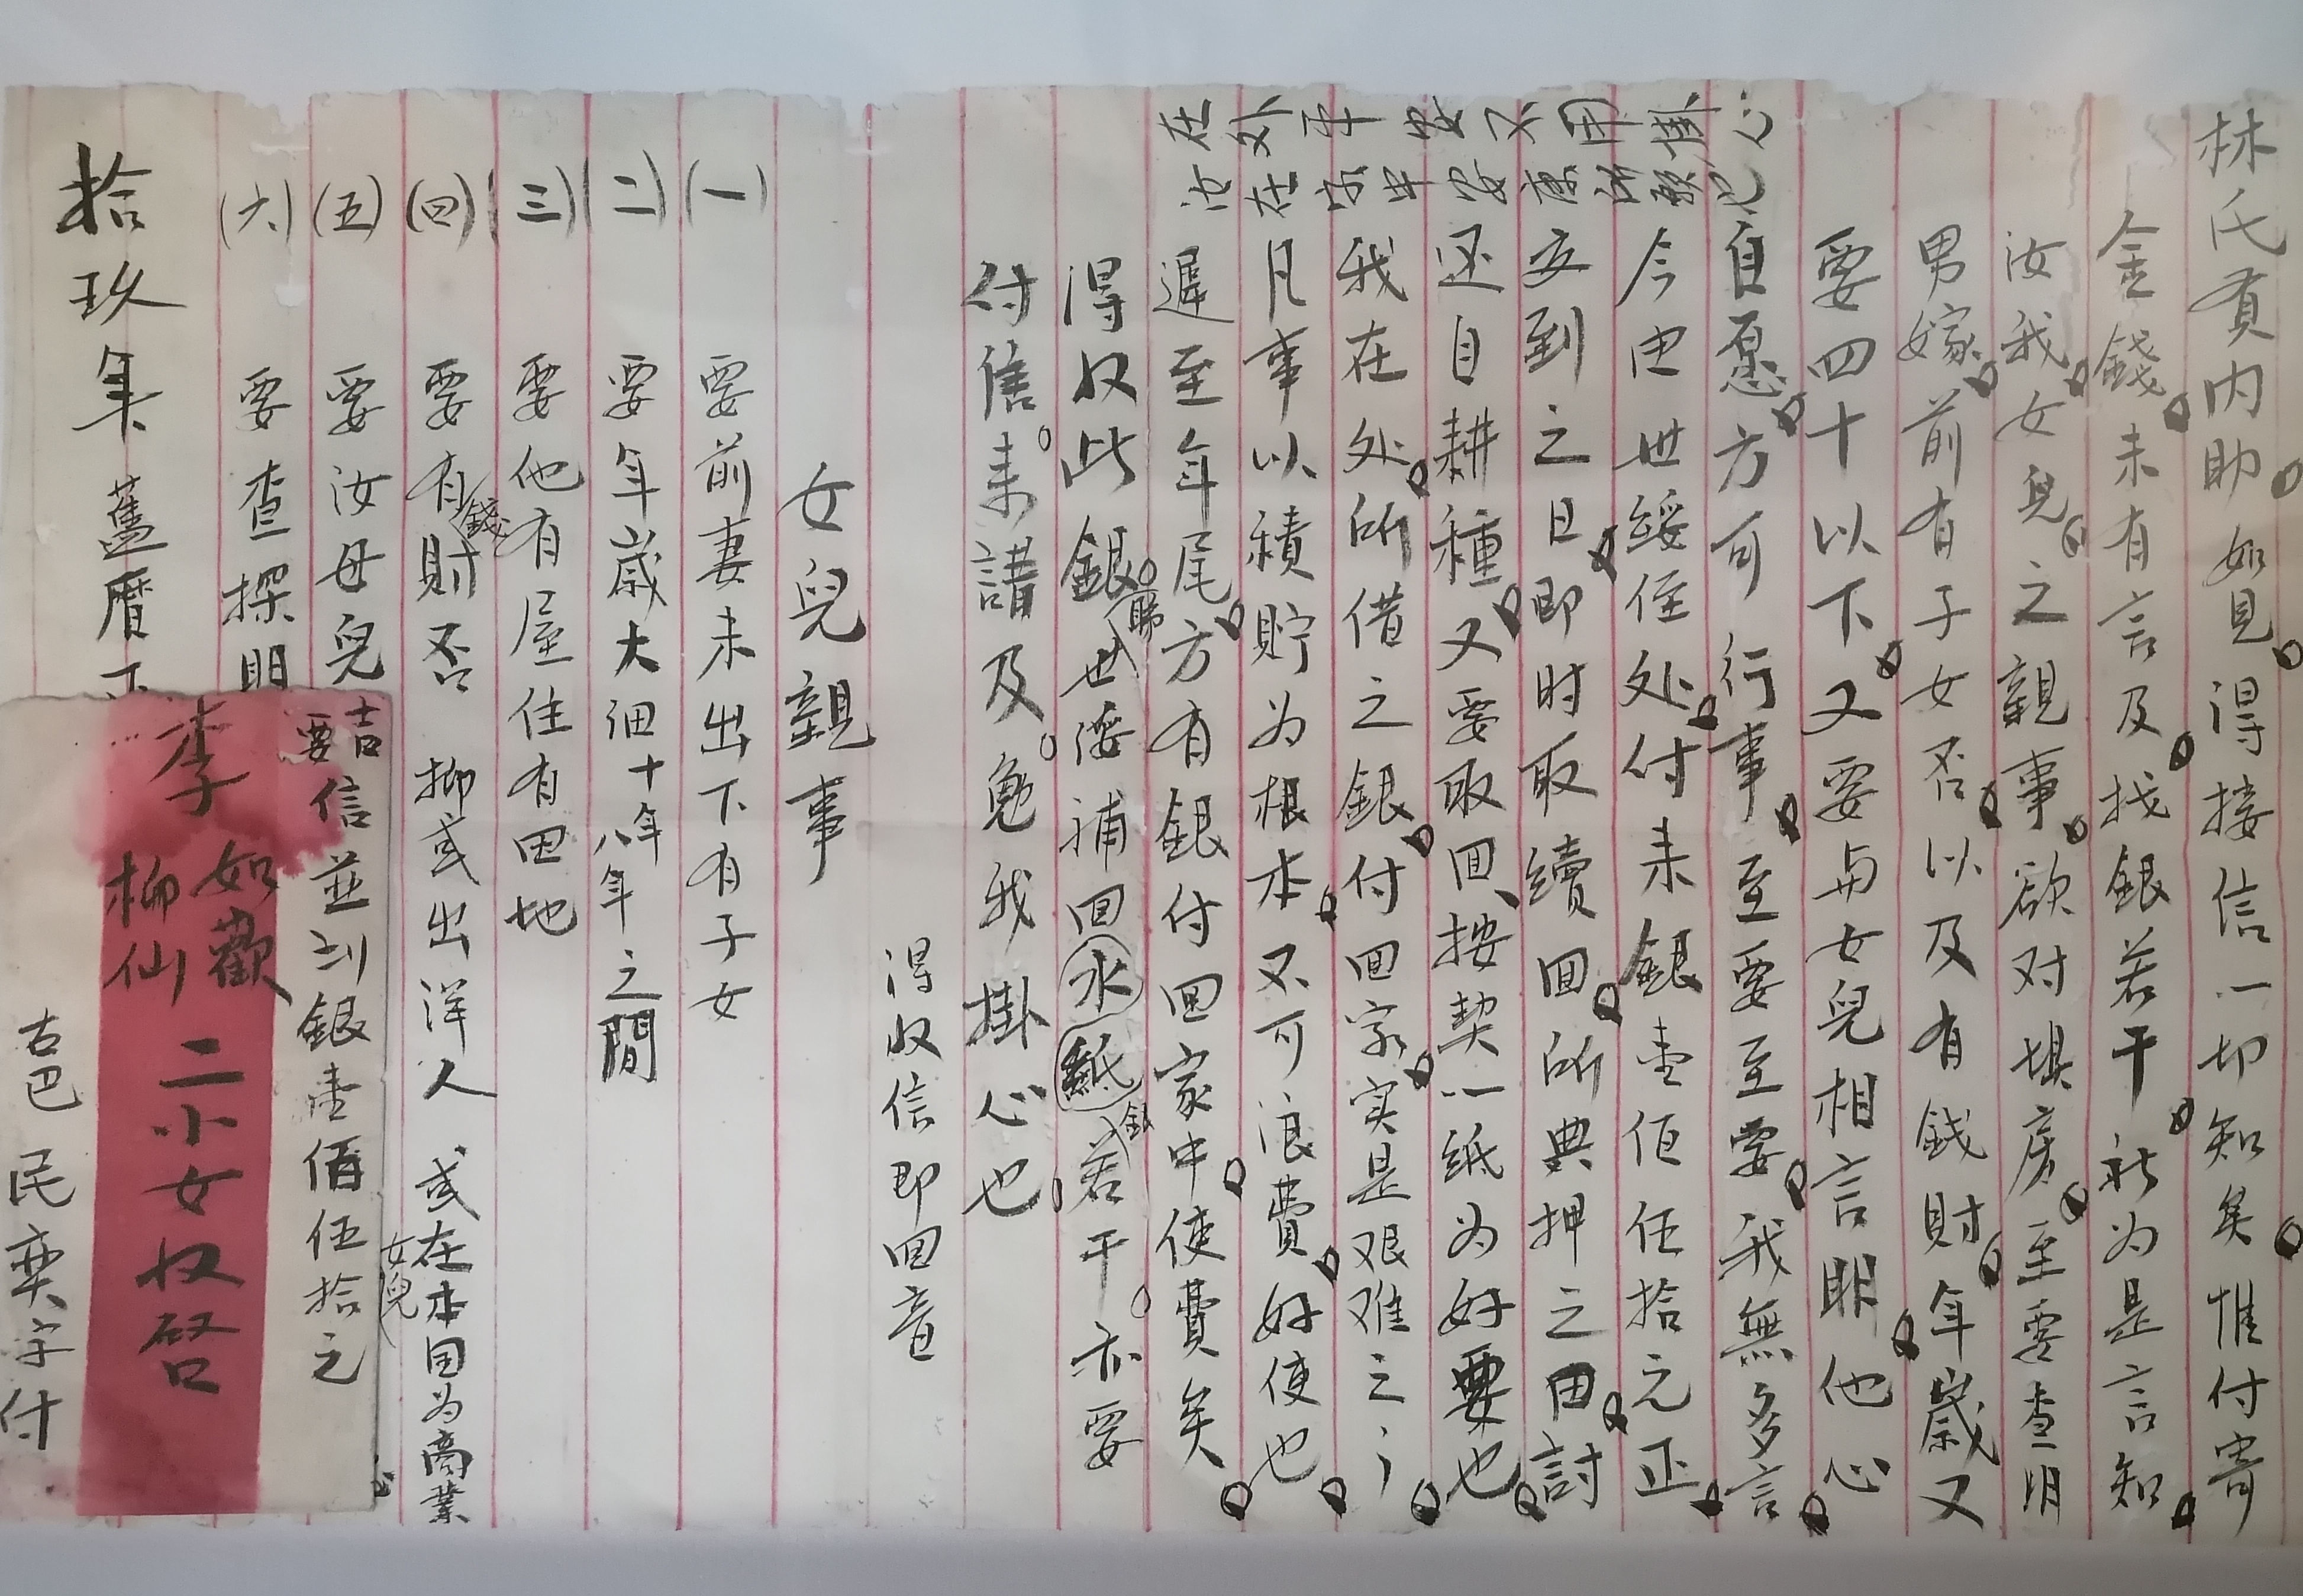 林氏賢內助如見得接信一切知矣惟付寄
金錢未有言及找銀若干祈为是言知
汝我女兒之親事欲对填房至要查明
男嫁前有子女否以及有錢財年歲又
要四十以下又要与女兒相言耶他心
自愿方可行事至要至要我無多言
今由世綏侄处付来銀壹佰伍拾元正
交到之日即时取續回所典押之田討
还自耕種又要取回按契一纸为好要也
我在处所借之銀付回家实是艰难之
凡事以積貯为根本不可浪費好使也
遲至年尾方有銀付回家中使費矣
得收此銀世綏補回水紙銀若干亦要
付信来講及免我掛心也
在外平安不用掛心
汝在家平安為所願也
得收信即回音
女兒親事
(一) 要前妻未出下有子女
(二) 要年歲大細十年八年之間
(三) 要他有屋住有田地
(四) 要有錢財否 抑或出洋人 或在本国为商業
(五) 要汝母女兒
(六) 要查探明
拾玖年舊曆正
吉信並刘銀壹佰伍拾元
要
李如歡
柳仙
二小女收啓
古巴 民奕字付